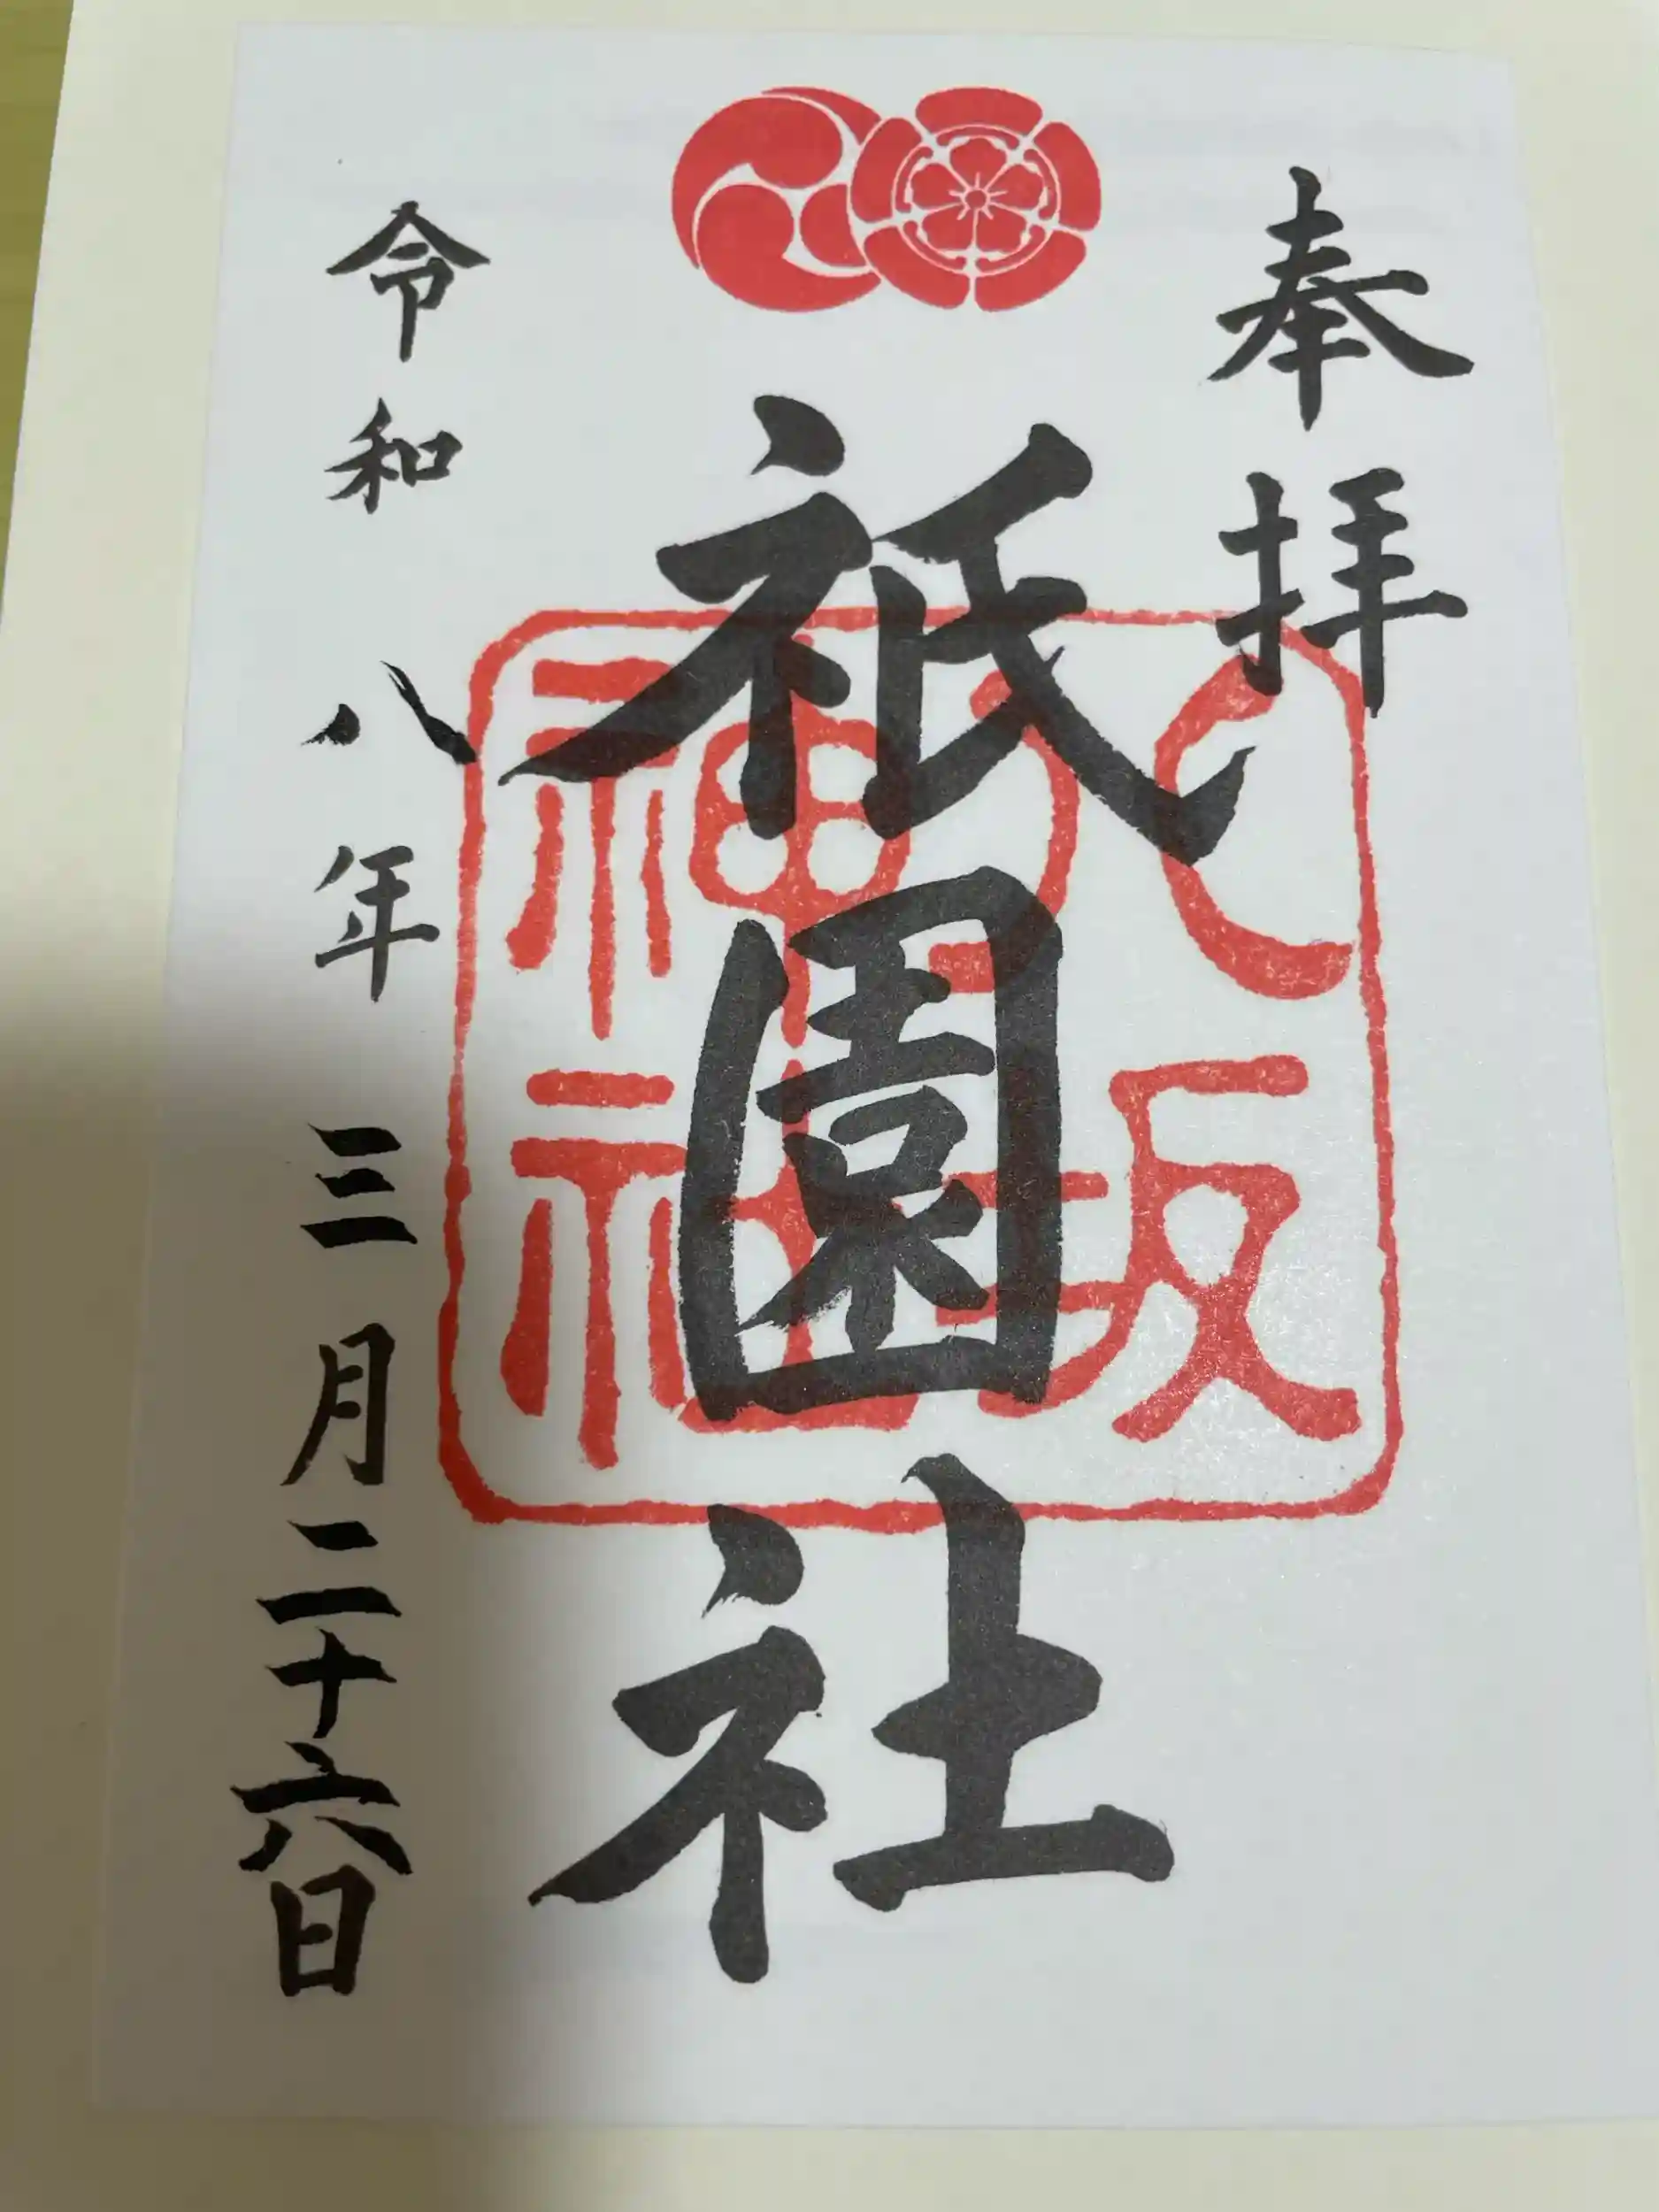 奉拝
祇園社
八坂神社
令和八年三月二十六日